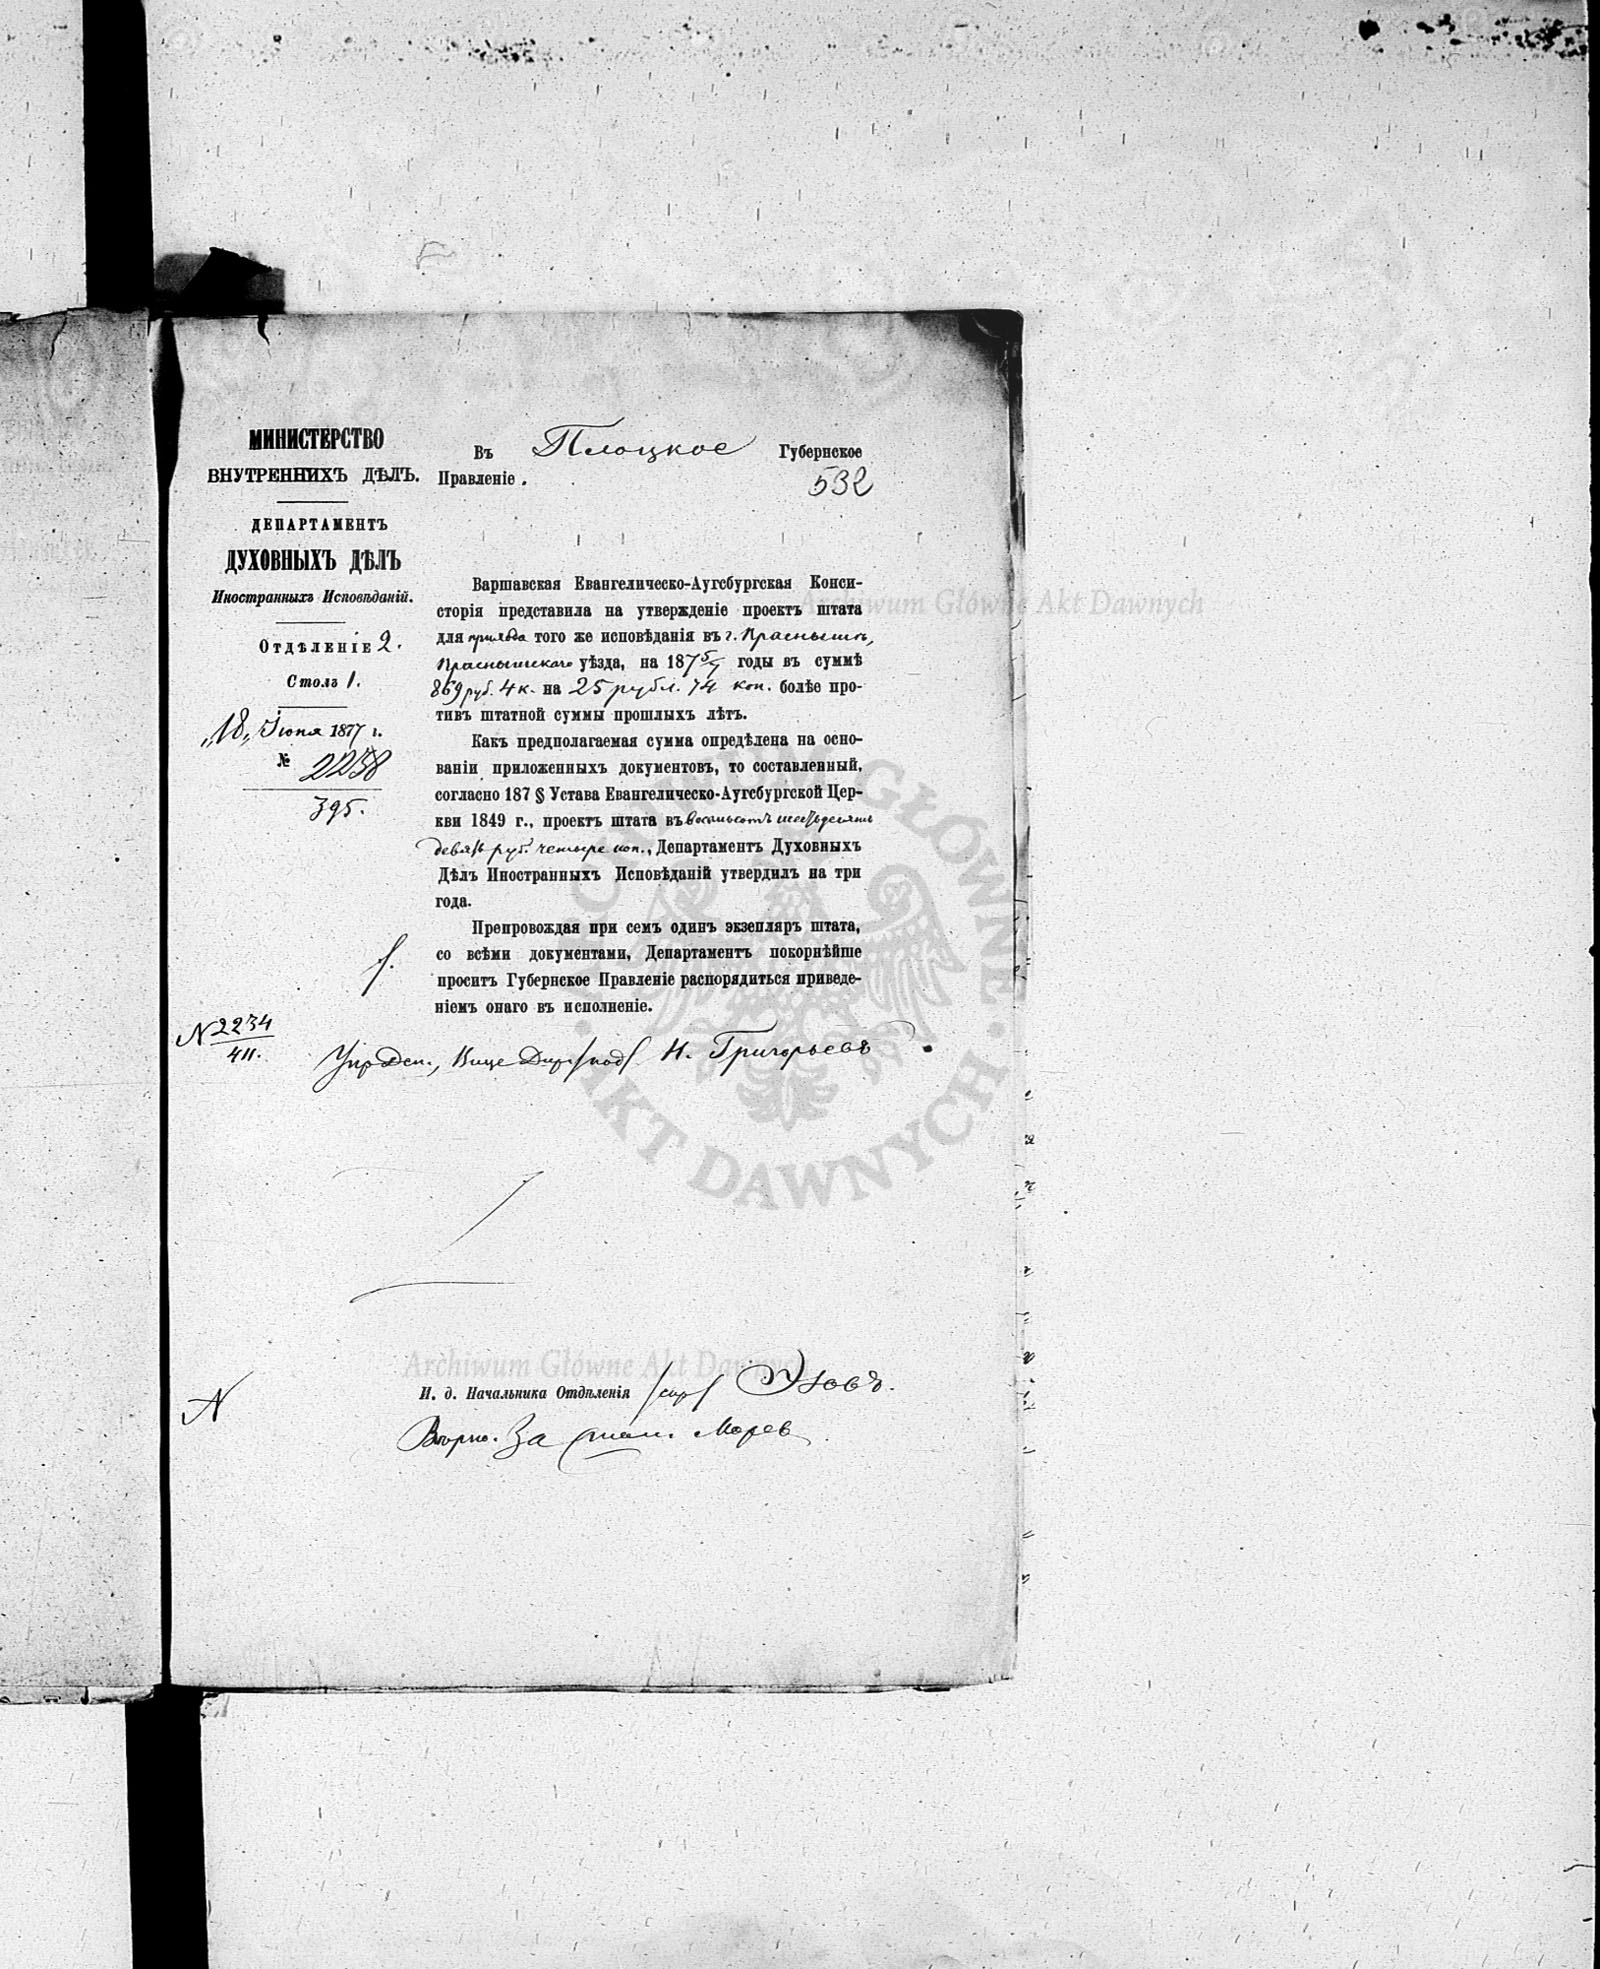 МИНИСТЕРСТВО
ВНУТРЕННИХЪ ДѢЛЪ.
ДЕПАРТАМЕНТЪ
ДУХОВНЫХЪ ДѢЛЪ
Иностранныхъ Исповѣданій.
Отдѣленіе 2.
Столъ 1.
„18„ Іюня 1877 г.
№ 2238
395.
Въ Плоцкое Губернское
Правленіе.
532
Варшавская Евангелическо-Аугсбургская Конси-
сторія представила на утвержденіе проектъ штата
для прихода того же исповѣданія въ г. Праснышѣ,
Праснышскаго уѣзда, на 1875/7 годы въ суммѣ
869 руб. 4 к. на 25 рубл. 74 коп. болѣе про-
тивъ штатной суммы прошлыхъ лѣтъ.
Какъ предполагаемая сумма опредѣлена на осно-
ваніи приложенныхъ документовъ, то составленный,
согласно 187 § Устава Евангелическо-Аугсбургской Цер-
кви 1849 г., проектъ штата въ восемьсотъ шестьдесятъ
девять руб. четыре коп., Департаментъ Духовныхъ
Дѣлъ Иностранныхъ Исповѣданій утвердилъ на три
года.
Препровождая при семъ одинъ экзепляръ штата,
со всѣми документами, Департаментъ покорнѣйше
проситъ Губернское Правленіе распорядиться приведе-
ніемъ онаго въ исполненіе.
N 2234
411.
Упр Деп., Вице Дир /под/ Н. Григорьевъ
И. д. Начальника Отдѣленія
Вѣрно. За
Archiwum Główne Akt Dawnych
Archiwum Główne Akt Dawnych
ARCHIWUM GŁÓWNE · AKT DAWNYCH ·